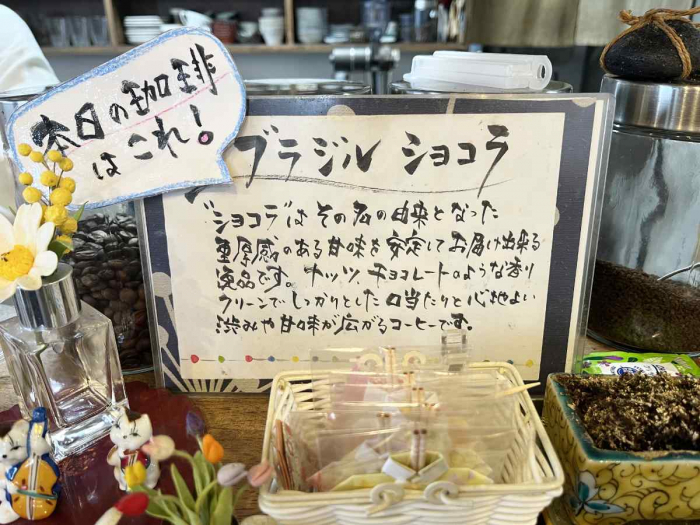 本日の珈琲
はこれ!
ブラジル ショコラ
"ショコラ"はその名の由来となった
重厚感のある甘味を安定してお届け出来る
逸品です。ナッツ、チョコレートのような香り
クリーンでしっかりとした口当たりと心地よい
渋みや甘味が広がるコーヒーです。